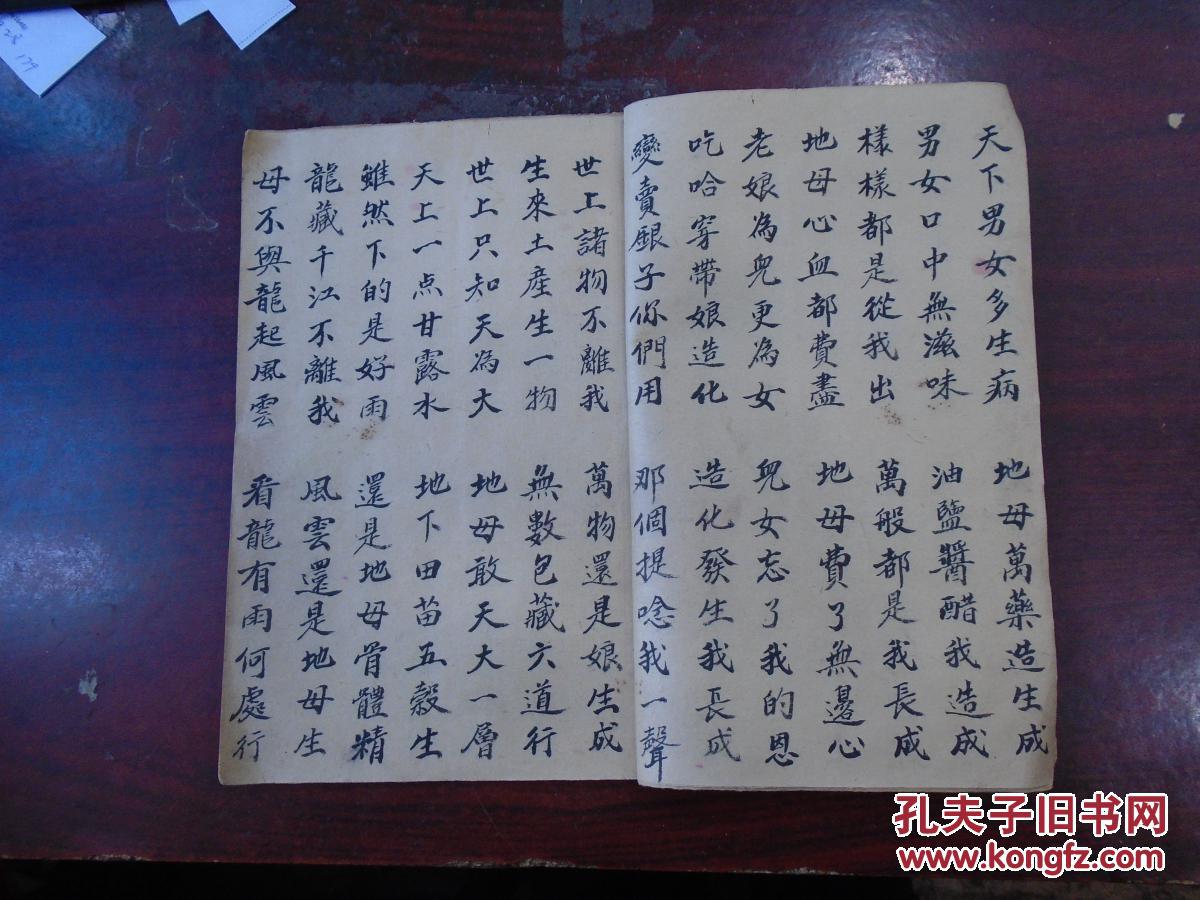 天下男女多生病 地母萬藥造生成
男女口中無滋味 油鹽醬醋我造成
樣樣都是從我出 萬般都是我長成
地母心血都費盡 地母費了無邊心
老娘為兒更為女 兒女忘了我的恩
吃哈穿帶娘造化 造化發生我長成
變賣銀子你們用 那個提唸我一聲
世上諸物不離我 萬物還是娘生成
生來土產生一物 無數包藏六道行
世上只知天為大 地母敢天大一層
天上一点甘露水 地下田苗五穀生
雖然下的是好雨 還是地母骨體精
龍藏千江不離我 風雲還是地母生
母不與龍起風雲 看龍有雨何處行
孔夫子旧书网
www.kongfz.com
179